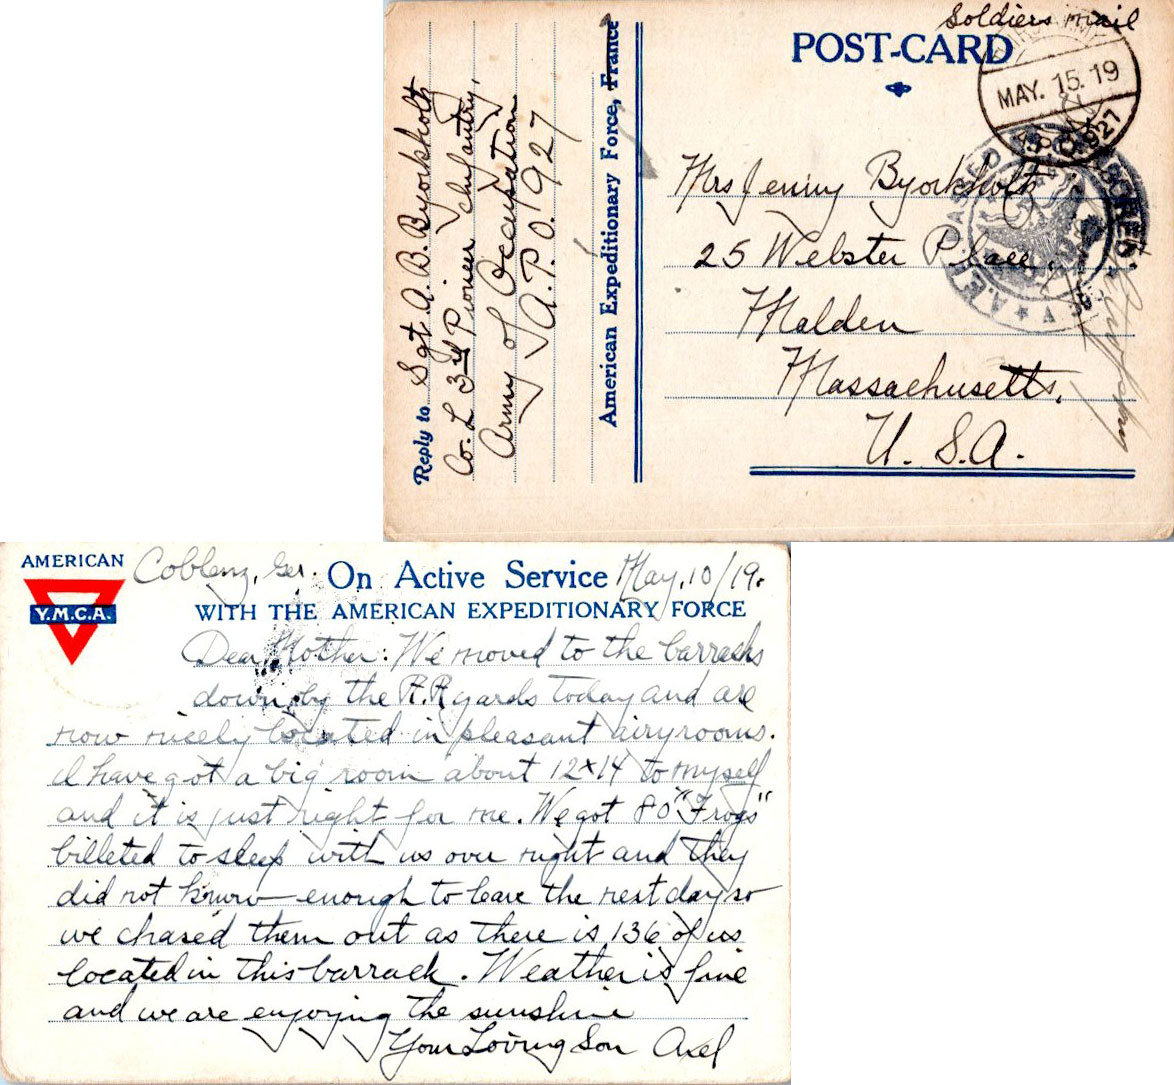 Soldiers mail
POST-CARD
MAY. 15. 19
927
A.E.F. PASSED AS CENSORED
Mrs Jenny Byorkholt
25 Webster Place,
Malden
Massachusetts,
U. S. A.
Reply to Sgt. A. B. Byorkholt
Co. L 3rd Pioneer Infantry,
Army of Occupation
A.P.O. 927
American Expeditionary Force, France
AMERICAN
Y.M.C.A.
Coblenz, Ger. On Active Service May, 10/19.
WITH THE AMERICAN EXPEDITIONARY FORCE
Dear Mother: We moved to the barracks
down by the R.R yards today and are
now nicely located in pleasant airy rooms.
I have got a big room about 12x14 to myself
and it is just right for me. We got 80 "Frogs"
billeted to sleep with us over night and they
did not know enough to leave the next day so
we chased them out as there is 136 of us
located in this barrack. Weather is fine
and we are enjoying the sunshine
Your Loving Son Axel